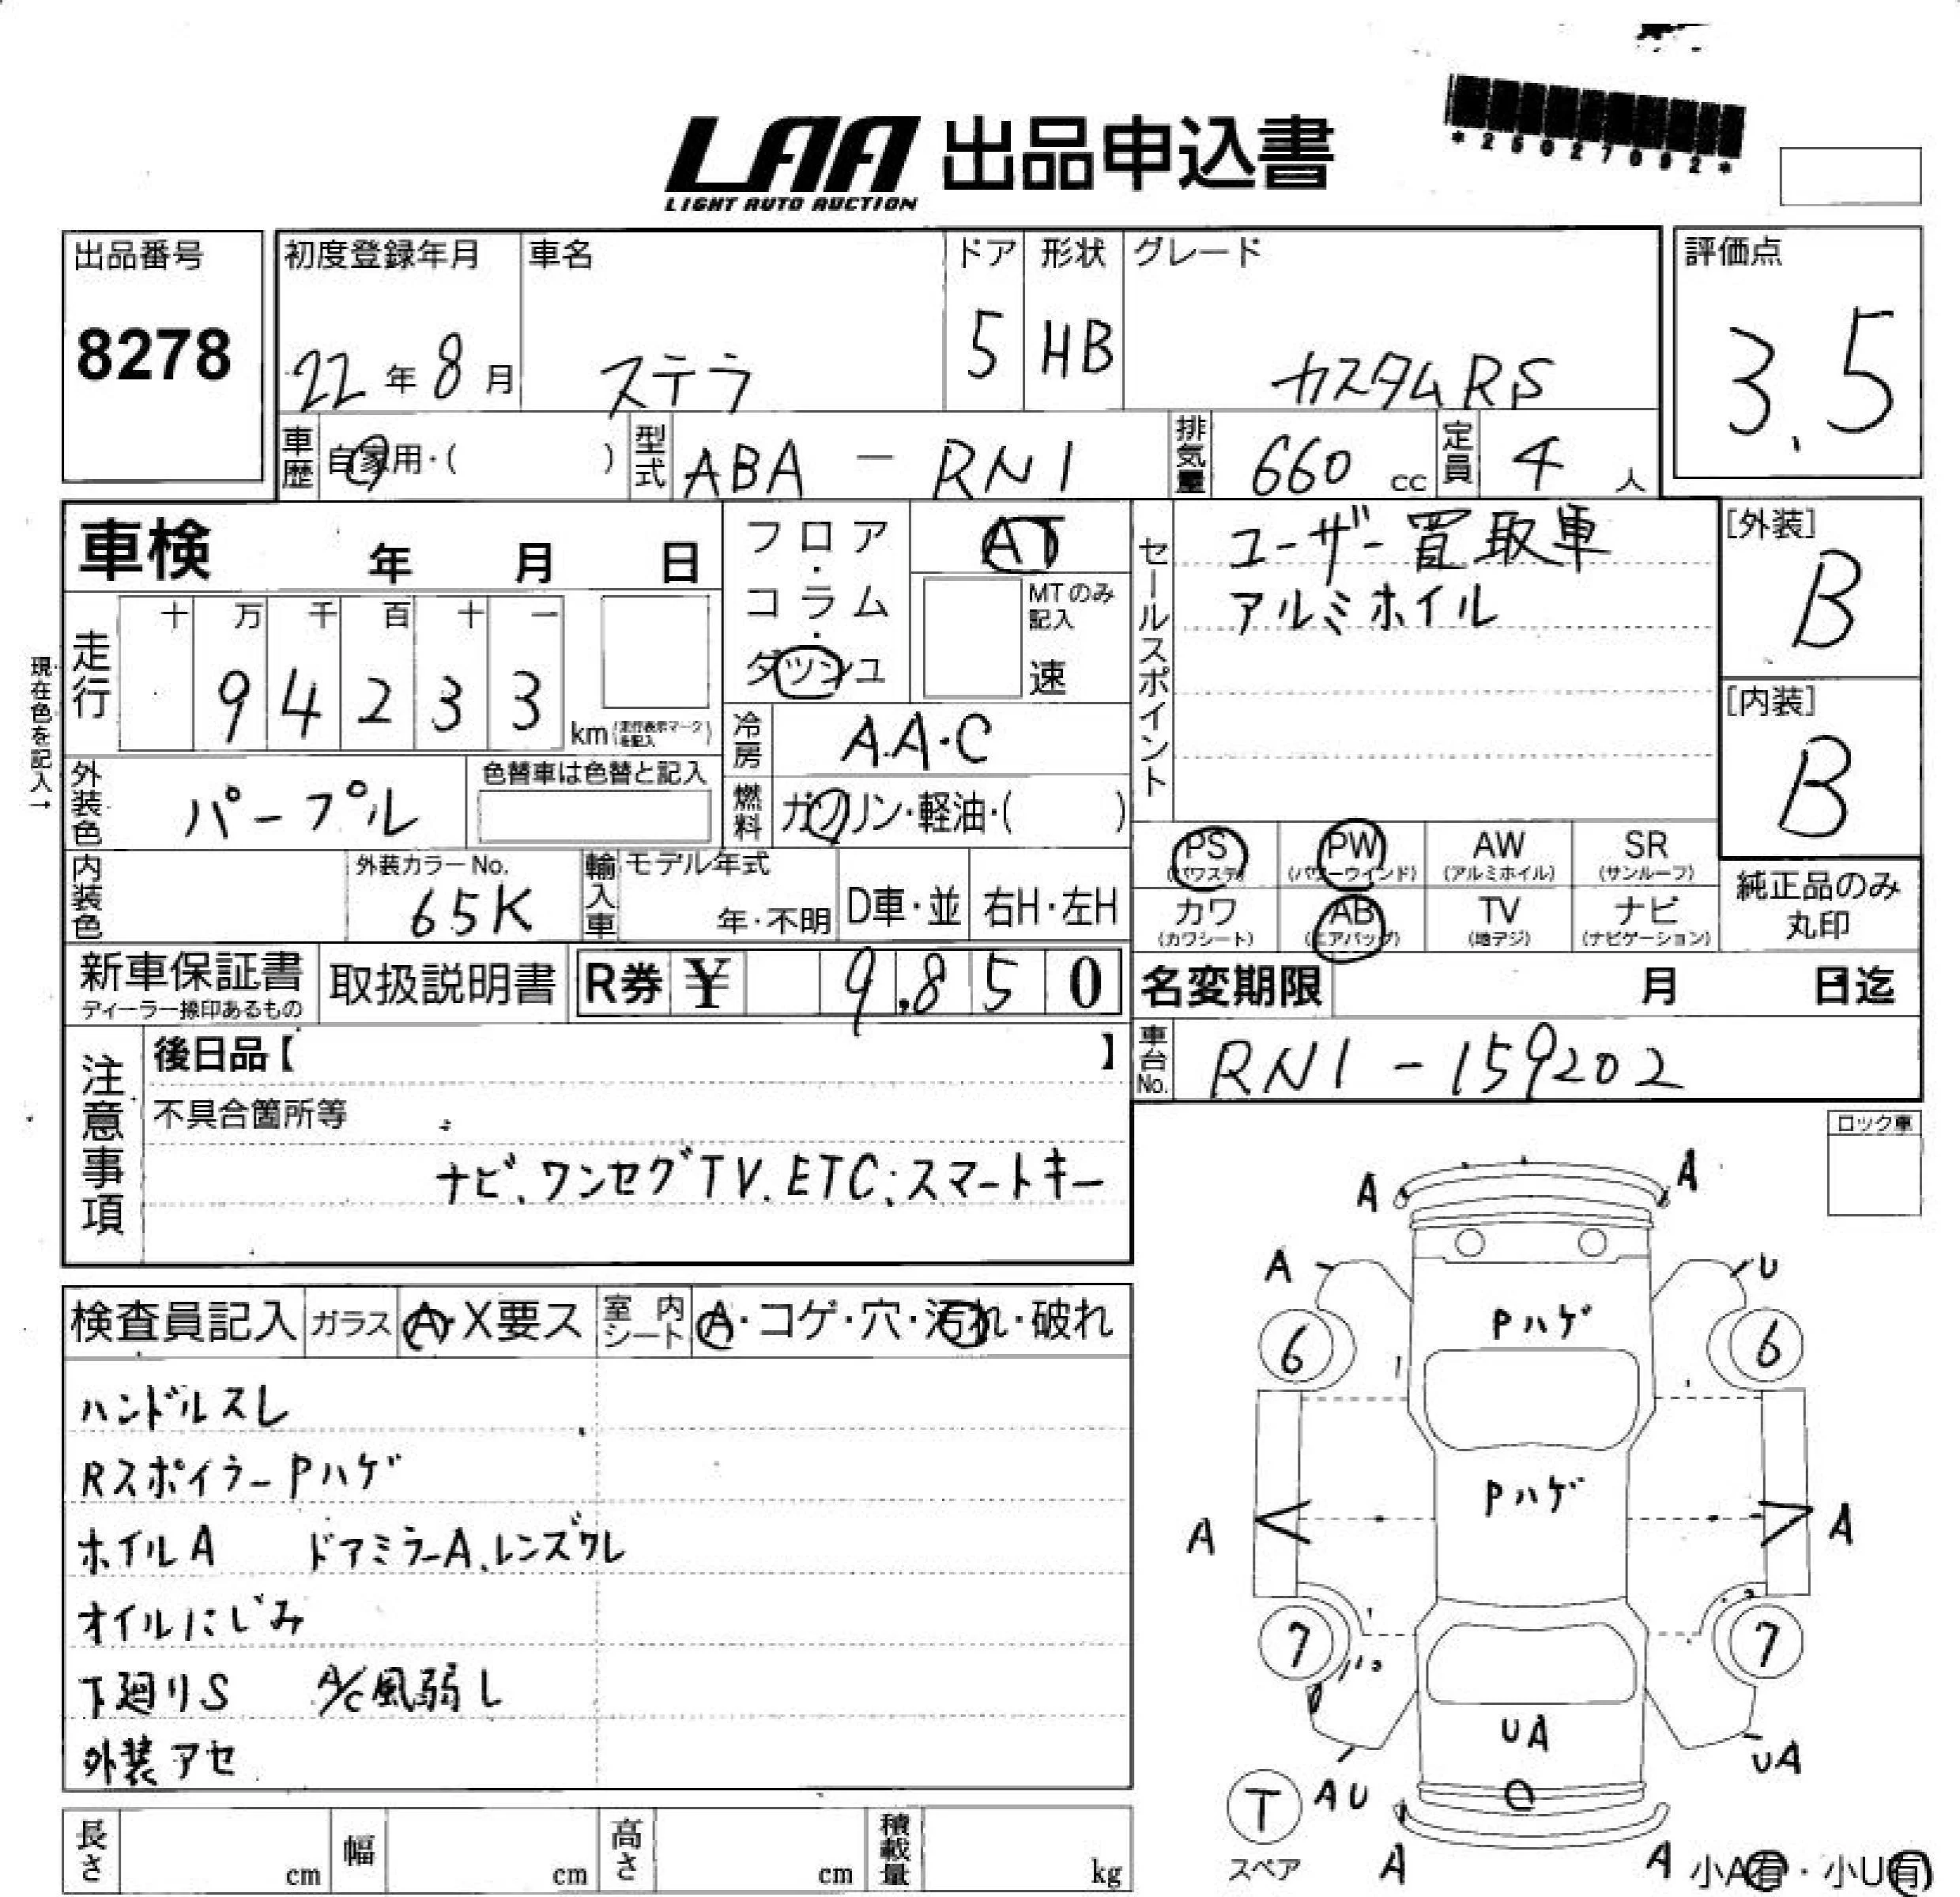 *25027092*
LAA 出品申込書
LIGHT AUTO AUCTION
出品番号
8278
初度登録年月
22年8月
車名
ステラ
ドア
5
形状
HB
グレード
カスタムRS
評価点
3.5
車歴
自家用・( )
型式
ABA-RN1
排気量
660 cc
定員
4 人
車検 年 月 日
フロア・コラム・ダッシュ
AT
MTのみ記入
速
現在色を記入→
走行
十 万 千 百 十 一
9 4 2 3 3
km (走行表示マークを記入)
冷房
A.A.C
外装色
パープル
色替車は色替と記入
燃料
ガソリン・軽油・( )
内装色
外装カラーNo.
65K
輸入車
モデル年式
年・不明
D車・並
右H・左H
セールスポイント
ユーザー買取車
アルミホイル
[外装]
B
[内装]
B
PS (パワステ)
PW (パワーウインド)
AW (アルミホイル)
SR (サンルーフ)
カワ (カワシート)
AB (エアバッグ)
TV (地デジ)
ナビ (ナビゲーション)
純正品のみ丸印
新車保証書
ディーラー捺印あるもの
取扱説明書
R券 ¥ 9,850
名変期限 月 日迄
車台No.
RN1-159202
注意事項
後日品【 】
不具合箇所等
ナビ、ワンセグTV.ETC、スマートキー
ロック車
検査員記入
ガラス
A・X要ス
室内シート
A・コゲ・穴・汚れ・破れ
ハンドルスレ
RスポイラーPハゲ
ホイルA ドアミラーA、レンズクレ
オイルにじみ
下廻りS A/C風弱し
外装アセ
A A
A U
6 Pハゲ 6
Pハゲ
A A
7 7
UA
UA
T AU
スペア
A A
小A有・小U有
長さ cm
幅 cm
高さ cm
積載量 kg